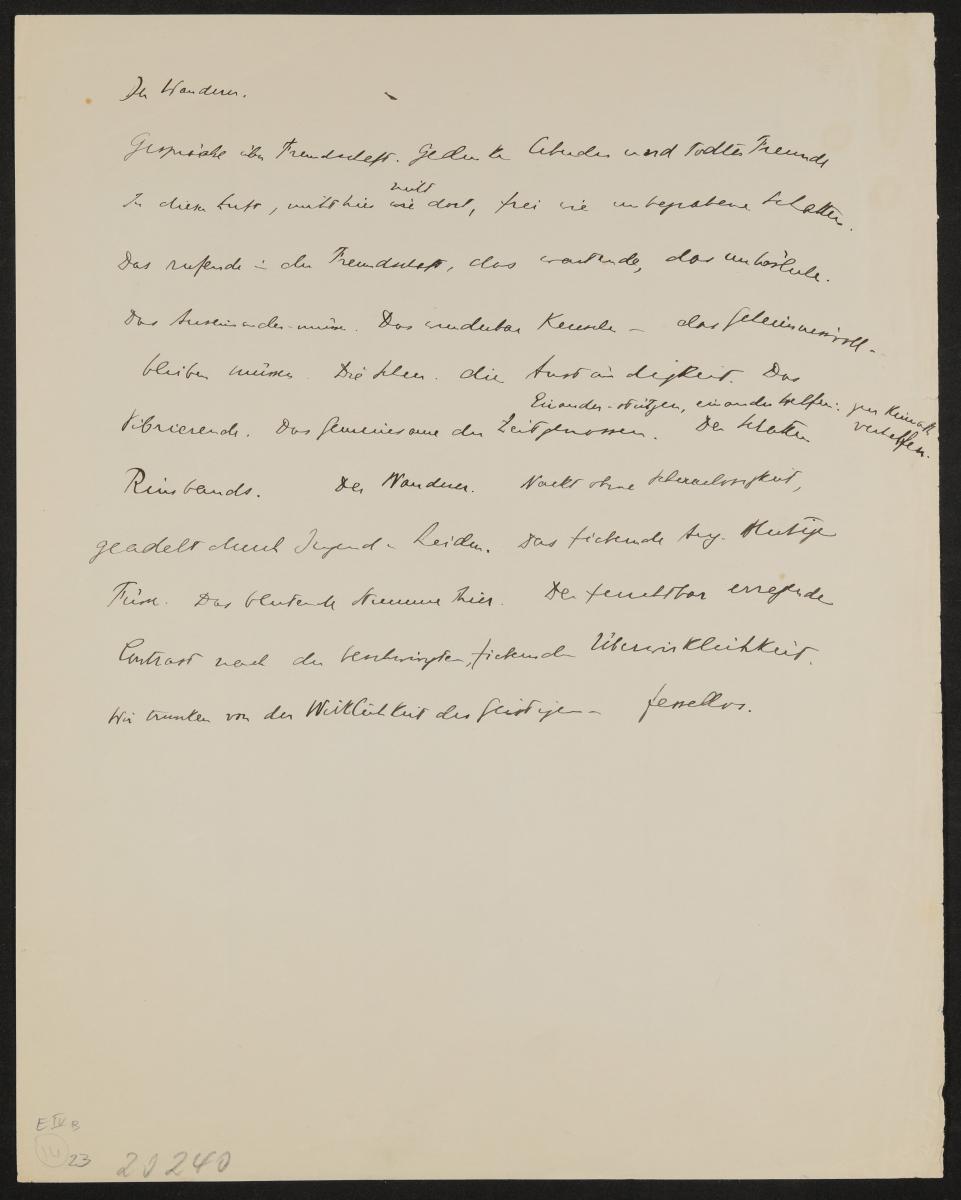 Der Wanderer.
Gespräche über Freundschaft. Gedenke lebender und todter Freunde
In dieser Luft, nicht hier nicht wie dort, frei wie unbegrabene Schatten.
Das rufende in der Freundschaft, das wartende, das
Das Auseinander-müssen. Das wunderbar Keusche – das Geheimnisvoll-
bleiben müssen. Die Scheu. die Anständigkeit. Das
Einander-stützen, einander helfen: zur verhelfen.
Vibrierende. Das Gemeinsame der Zeitgenossen. Der Schatten
Rimbauds. Der Wanderer. Nackt ohne Schamlosigkeit,
geadelt durch Jugend u Leiden. Das fiebernde Aug. Blutige
Füsse. Das blutende stumme Thier. Der furchtbar erregende
Contrast nach der beschwingten, fiebernden Überwirklichkeit.
Wir trunken von der Wirklichkeit des Geistigen – fessellos.
E IV B
14
23
20240